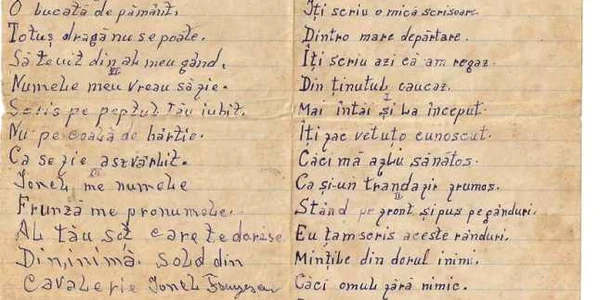 O bucată de pământ.
Totuș dragă nu se poate.
Să te uit din al meu gând.
VI
Numele meu vreau să fie.
Scris pe peptul Tău iubit.
Nu pe coală de hârtie.
Ca se fie asvârlit.
VII
Ionel me numele
Frunză me pronumele.
Al tău soț care te dorese
Din, inimă. sold din
Cavalerie Ionel
Iți scriu o mică scrisoare.
Dintro mare depărtare.
Iți scriu azi că am regaz.
Din ținutul caucaz.
I
Mai întâi și la început.
Iți fac vetuto cunoscut.
Căci mă aflu sănătos.
Ca și-un trandafir frumos.
II
Stând pe front și pus pe gânduri.
Eu țam scris aceste rânduri.
Mințile din dorul inimi.
Căci omul fără nimic.